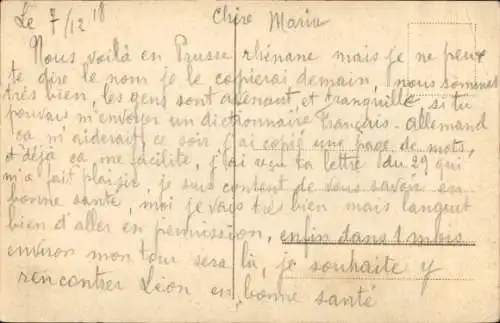 Le 7/12 18
Chère Maria
Nous voilà en Prusse rhénane mais je ne peux
te dire le nom je le copierai demain, nous sommes
très bien, les gens sont avenant, et tranquille, si tu
pouvais m'envoyer un dictionnaire Français-Allemand
ça m'aiderait, ce soir j'ai copié une page de mots,
et déjà ça me facilite, j'ai reçu ta lettre du 29 qui
m'a fait plaisir, je suis content de vous savoir en
bonne santé, moi je vais très bien mais languit
bien d'aller en permission, enfin dans 1 mois
environ mon tour sera là, je souhaite y
rencontrer Léon en bonne santé